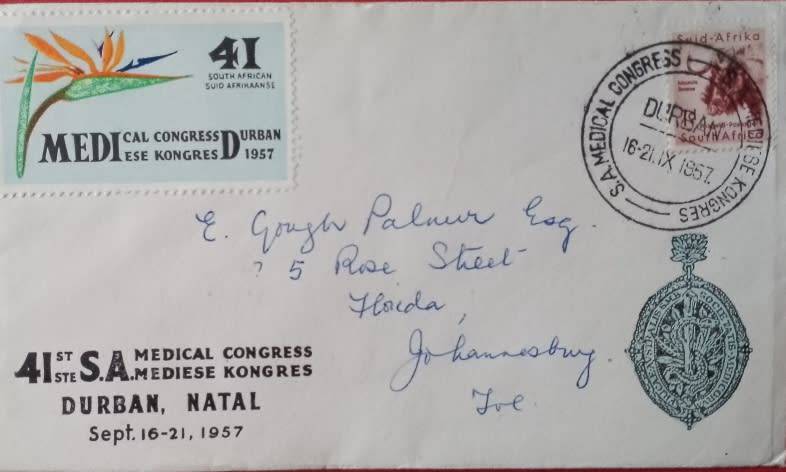 41
SOUTH AFRICAN
SUID AFRIKAANSE
MEDICAL CONGRESS DURBAN
MEDIESE KONGRES D 1957
Suid-Afrika
South Afri
S.A. MEDICAL CONGRESS
MEDIESE KONGRES
DURBAN
16-21.IX 1957.
E. Gough Palmer Esq.
? 5 Rose Street
Florida,
Johannesburg.
Tvl.
41 ST STE S.A. MEDICAL CONGRESS
MEDIESE KONGRES
DURBAN, NATAL
Sept. 16-21, 1957